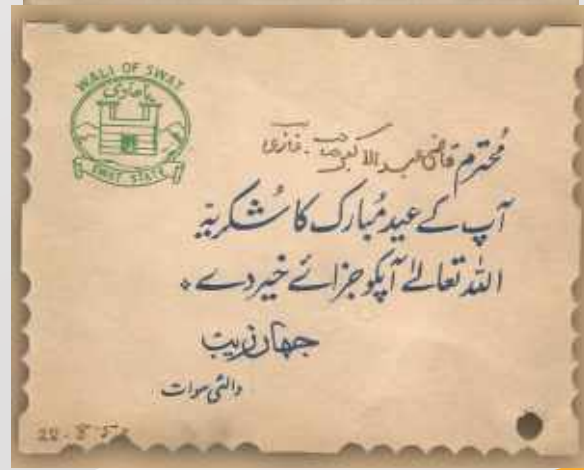 WALI OF SWAY
SWAT STATE
مُحترم قاضی عبد الاکبر صاحب۔
آپ کے عید مُبارک کا شُکریہ
اللہ تعالےٰ آپکو جزائے خیر دے ٭
جہانزیب
والئی سوات